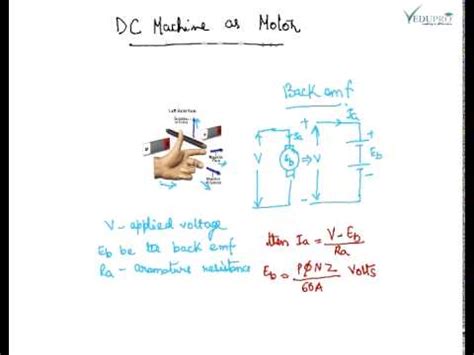 DC Machine as Motor
VEDUPRO
Back emf
Ia
V
Eb
⇒
V
+
-
Ia
+
Eb
-
V - applied voltage
Eb be the back emf
Ra - aramature resistance
then Ia = V - Eb / Ra
Eb = PΦNZ / 60A Volts